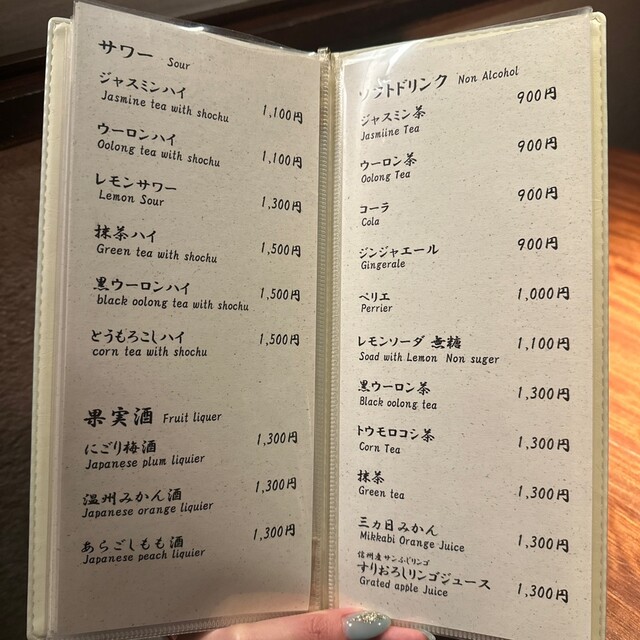 サワー Sour
ジャスミンハイ
Jasmine tea with shochu 1,100円
ウーロンハイ
Oolong tea with shochu 1,100円
レモンサワー
Lemon Sour 1,300円
抹茶ハイ
Green tea with shochu 1,500円
黒ウーロンハイ
black oolong tea with shochu 1,500円
とうもろこしハイ
corn tea with shochu 1,500円
果実酒 Fruit liquer
にごり梅酒 1,300円
Japanese plum liquier
温州みかん酒 1,300円
Japanese orange liquier
あらごしもも酒 1,300円
Japanese peach liquier
ソフトドリンク Non Alcohol
ジャスミン茶 900円
Jasmiine Tea
ウーロン茶 900円
Oolong Tea
コーラ 900円
Cola
ジンジャエール 900円
Gingerale
ペリエ 1,000円
Perrier
レモンソーダ 無糖 1,100円
Soad with Lemon Non suger
黒ウーロン茶 1,300円
Black oolong tea
トウモロコシ茶 1,300円
Corn Tea
抹茶 1,300円
Green tea
三ヵ日みかん 1,300円
Mikkabi Orange Juice
信州産サンふじリンゴ
すりおろしリンゴジュース 1,300円
Grated apple Juice